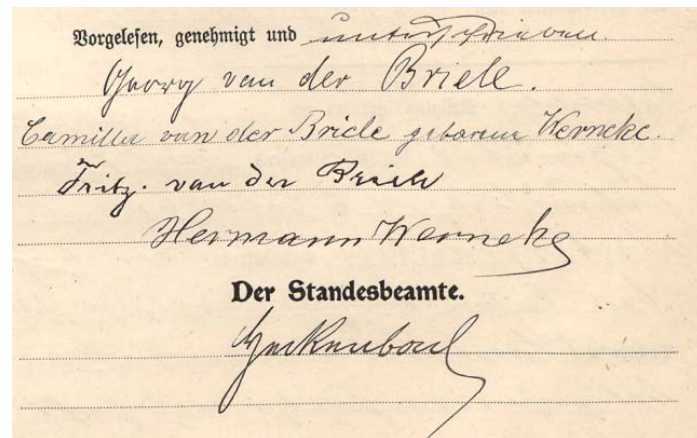 Vorgelesen, genehmigt und unterschrieben.
Georg van der Briele.
Camilla van der Briele geborene Werneke.
Fritz. van der Briele
Hermann Werneke
Der Standesbeamte.